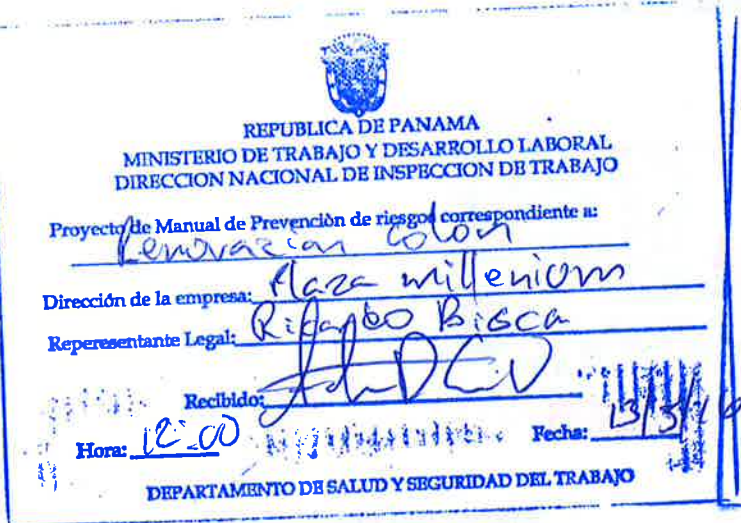 REPUBLICA DE PANAMA
MINISTERIO DE TRABAJO Y DESARROLLO LABORAL
DIRECCION NACIONAL DE INSPECCION DE TRABAJO
Proyecto de Manual de Prevención de riesgos correspondiente a:
Renovacion Colon
Dirección de la empresa: Plaza millenium
Reperesentante Legal: Ricardo
Recibido:
Hora: 12:00 Fecha: 13/5/
DEPARTAMENTO DE SALUD Y SEGURIDAD DEL TRABAJO